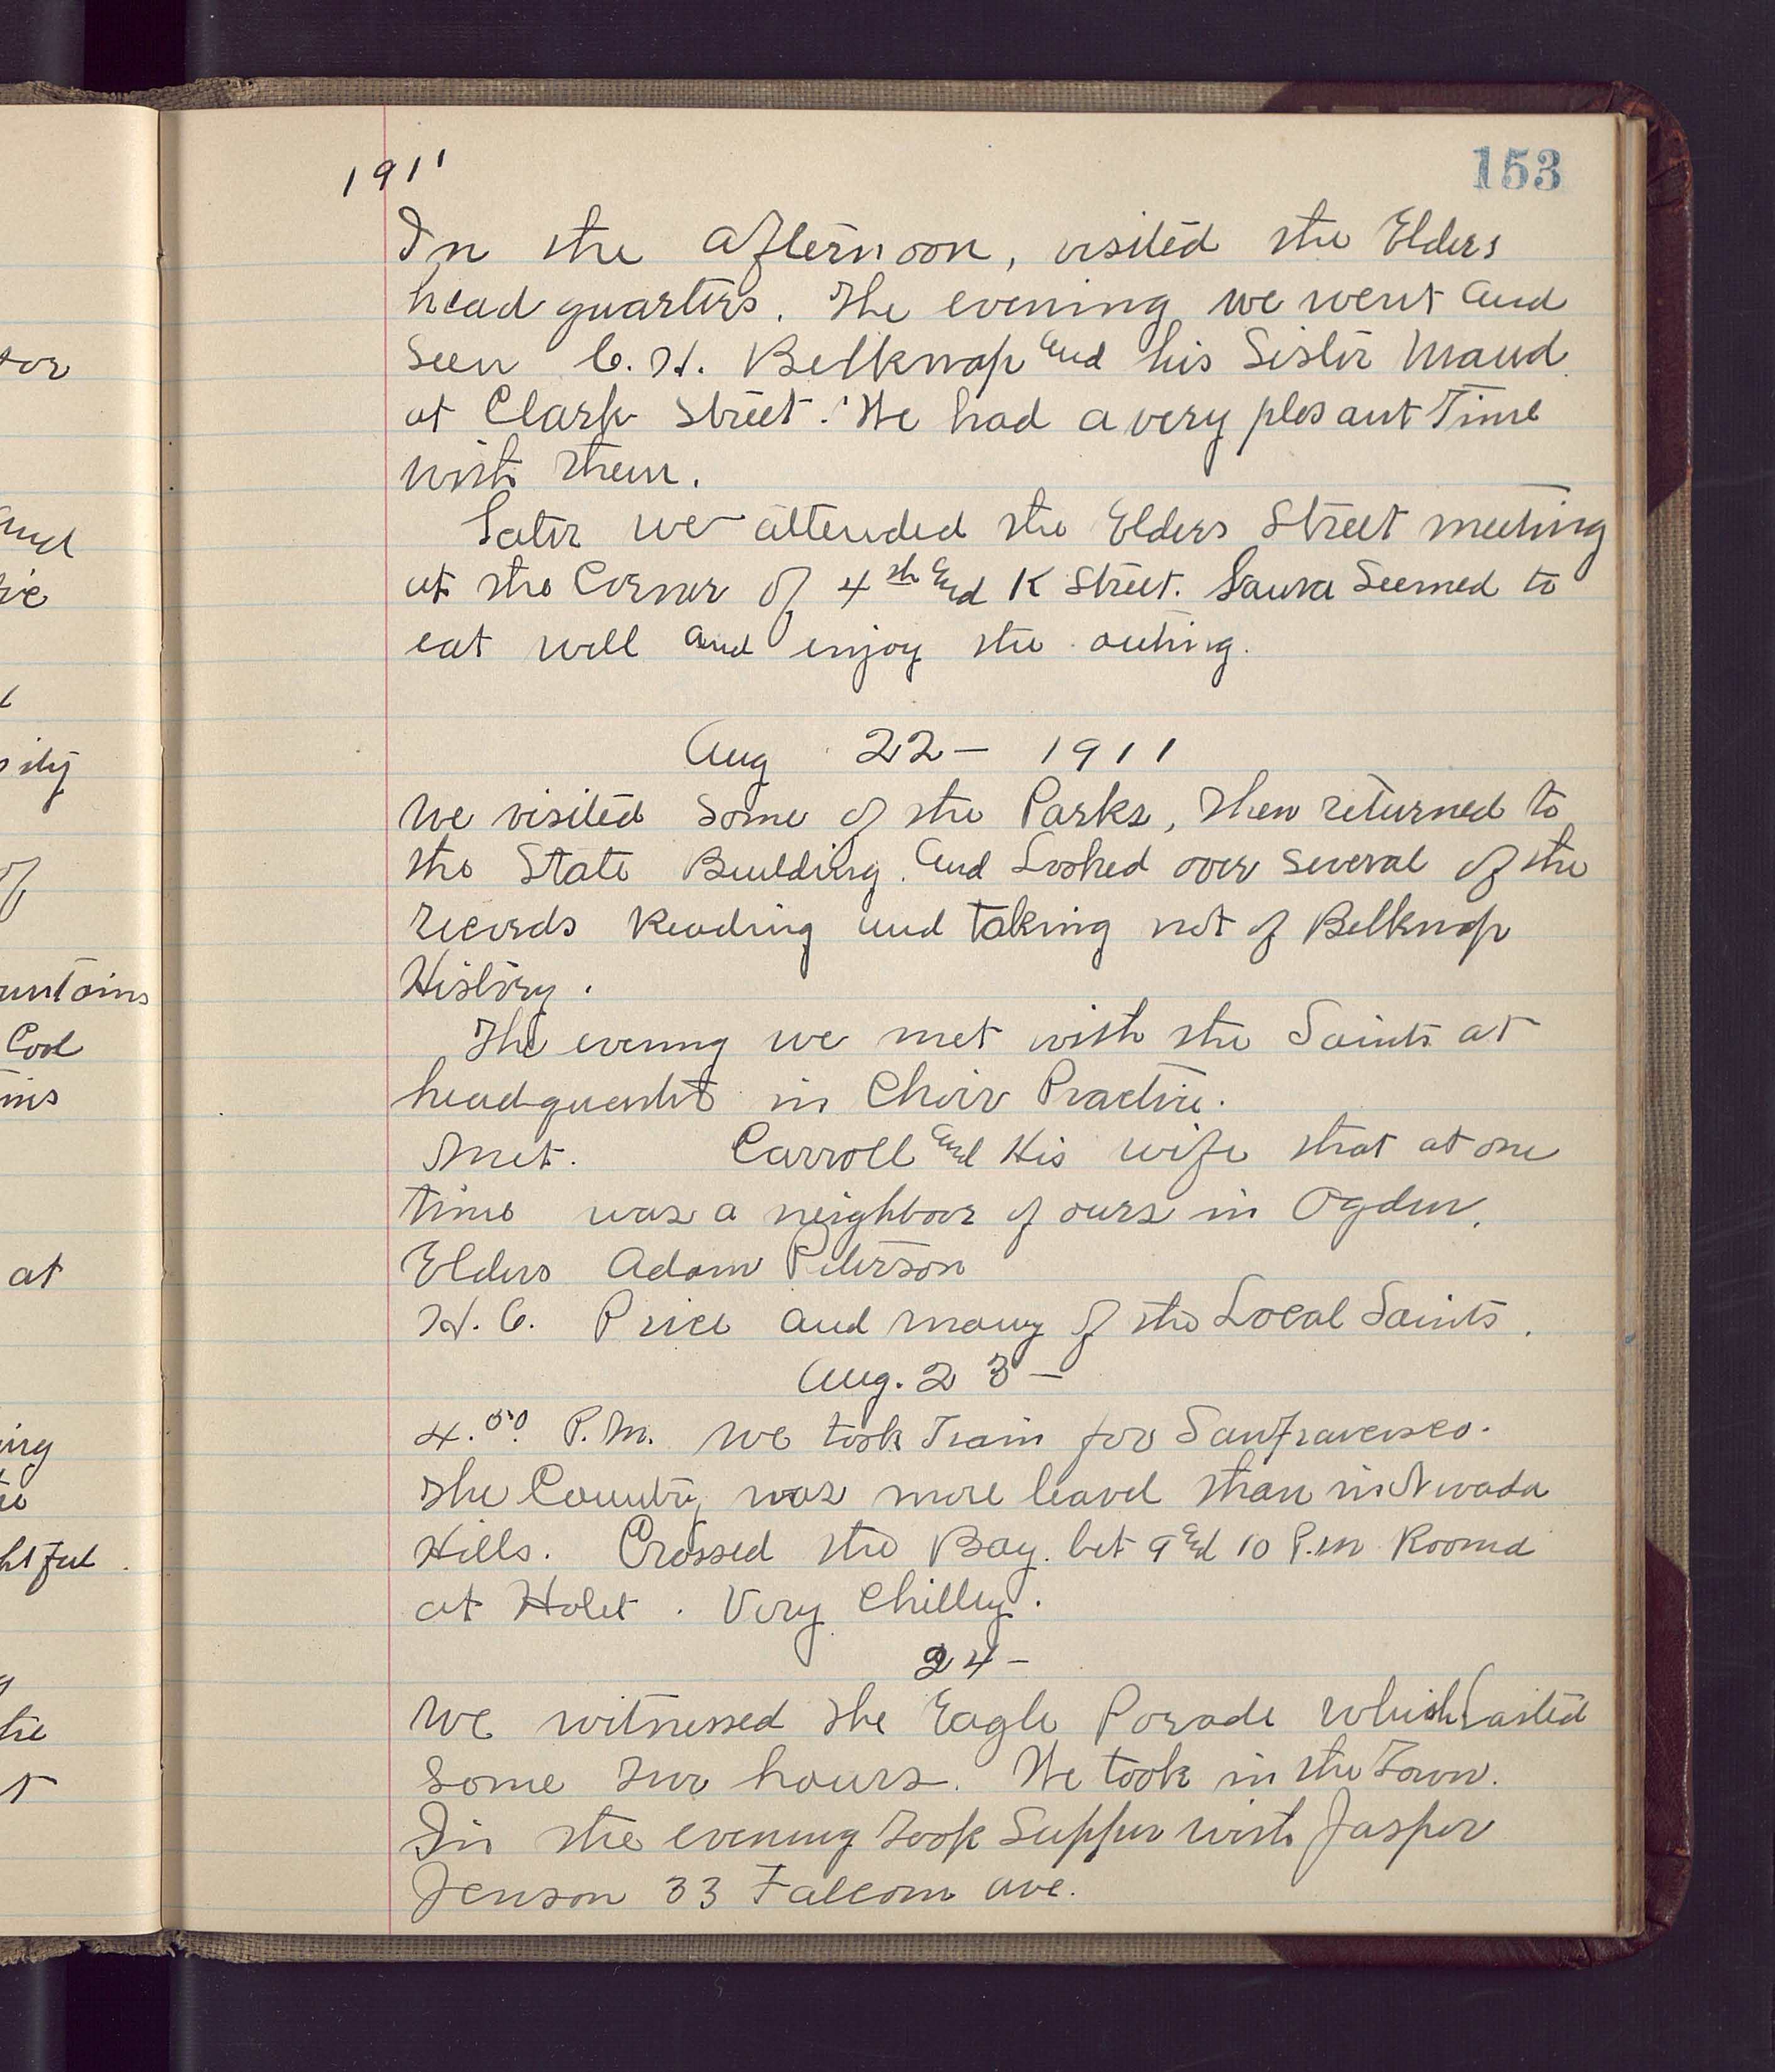 153
1911
In the afternoon, visited the Elders
head quarters. The evening we went and
seen C. H. Belknap and his Sister Maud
at Clark Street. We had a very plesant Time
with them.
Later we attended the Elders Street meeting
at the Corner of 4th and K Street. Laura Seemed to
eat well and enjoy the outing.
Aug 22 - 1911
We visited Some of the Parks, Then returned to
the State Building. and Looked over several of the
records Reading and taking not of Belknap
History.
The evening we met with the Saints at
headquarters in Choir Practice.
Met. Carroll and His wife that at one
time was a neighboor of ours in Ogden.
Elders Adam Peterson
H. C. Price and many of the Local Saints.
Aug. 23 -
4.50 P.M. We took Train for Sanfrancisco.
The Country was more leavel than in Nevada
Hills. Crossed the Bay. bet 9 and 10 P.m Roomd
at Holet. Very Chilley.
24 -
We witnessed the Eagle Parade which Lasted
Some two hours. We took in the Town.
In the evening took Supper with Jasper
Jenson 33 Falcom ave.
tor
and
of
untains
Cool
ins
at
ing
htful.